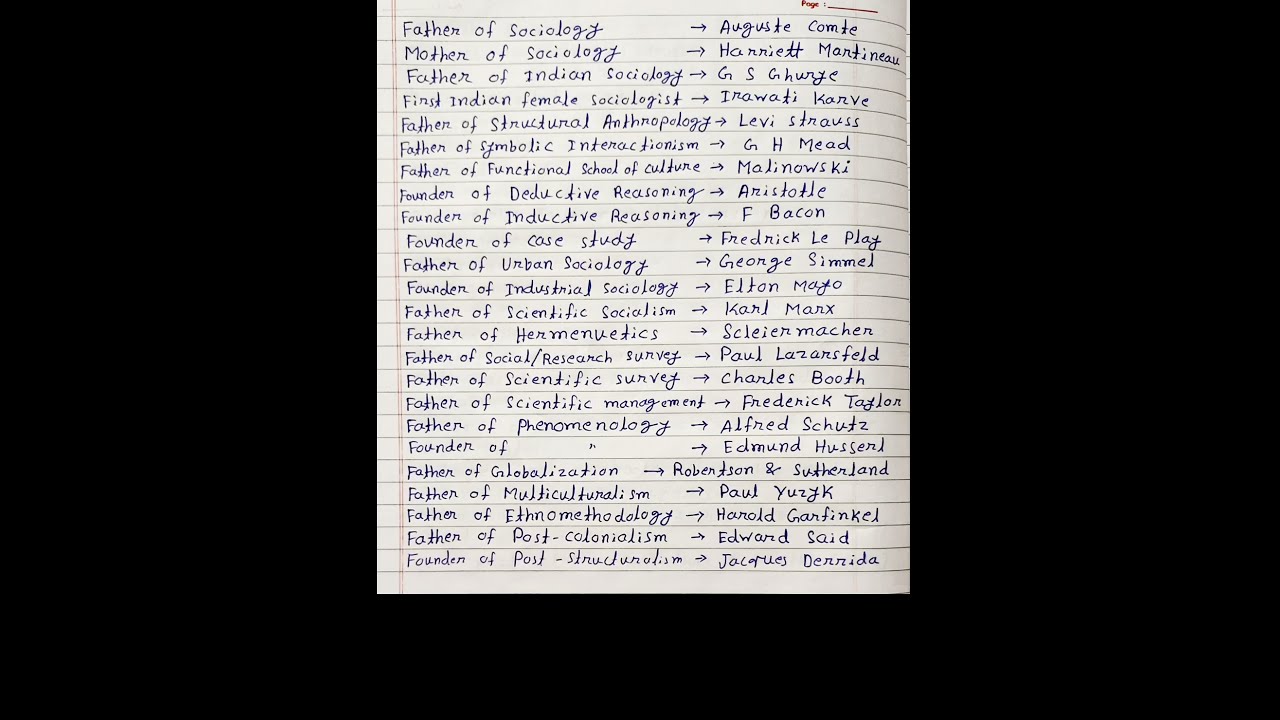 Page :
Father of Sociology → Auguste Comte
Mother of Sociology → Harriett Martineau
Father of Indian Sociology → G S Ghurye
First Indian female Sociologist → Irawati Karve
Father of Structural Anthropology → Levi strauss
Father of Symbolic Interactionism → G H Mead
Father of Functional School of culture → Malinowski
Founder of Deductive Reasoning → Aristotle
Founder of Inductive Reasoning → F Bacon
Founder of case study → Fredrick Le Play
Father of Urban Sociology → George Simmel
Founder of Industrial Sociology → Elton Mayo
Father of Scientific Socialism → Karl Marx
Father of Hermenuetics → Scleiermacher
Father of Social/Research survey → Paul Lazarsfeld
Father of Scientific survey → Charles Booth
Father of Scientific management → Frederick Taylor
Father of Phenomenology → Alfred Schutz
Founder of " → Edmund Husserl
Father of Globalization → Robertson & Sutherland
Father of Multiculturalism → Paul Yuzyk
Father of Ethnomethodology → Harold Garfinkel
Father of Post-colonialism → Edward Said
Founder of Post-structuralism → Jacques Derrida